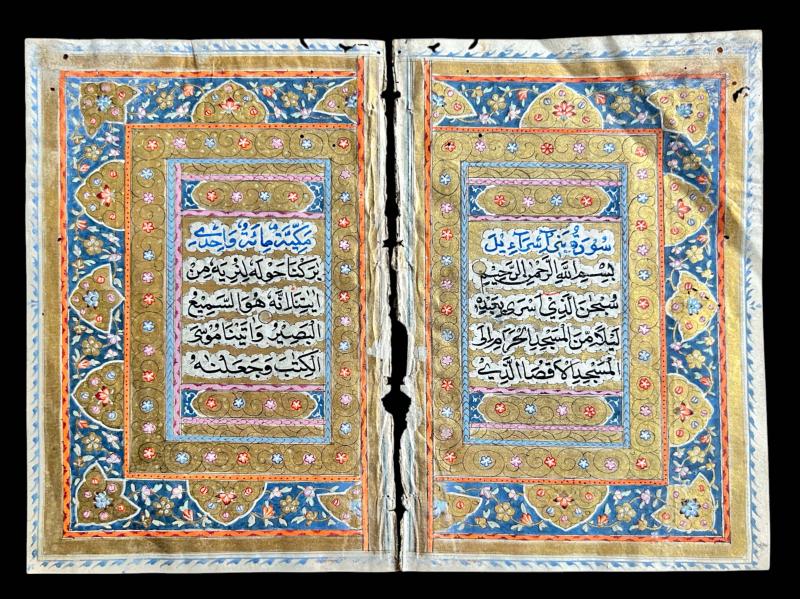 سورة بنی اسرآءیل
بسم الله الرحمن الرحیم
سبحن الذی اسری بعبده
لیلا من المسجد الحرام الی
المسجد الاقصا الذی
مکیة مائة واحدی
برکنا حوله لنریه من
ایتنا انه هو السمیع
البصیر واتینا موسی
الکتب وجعلنه